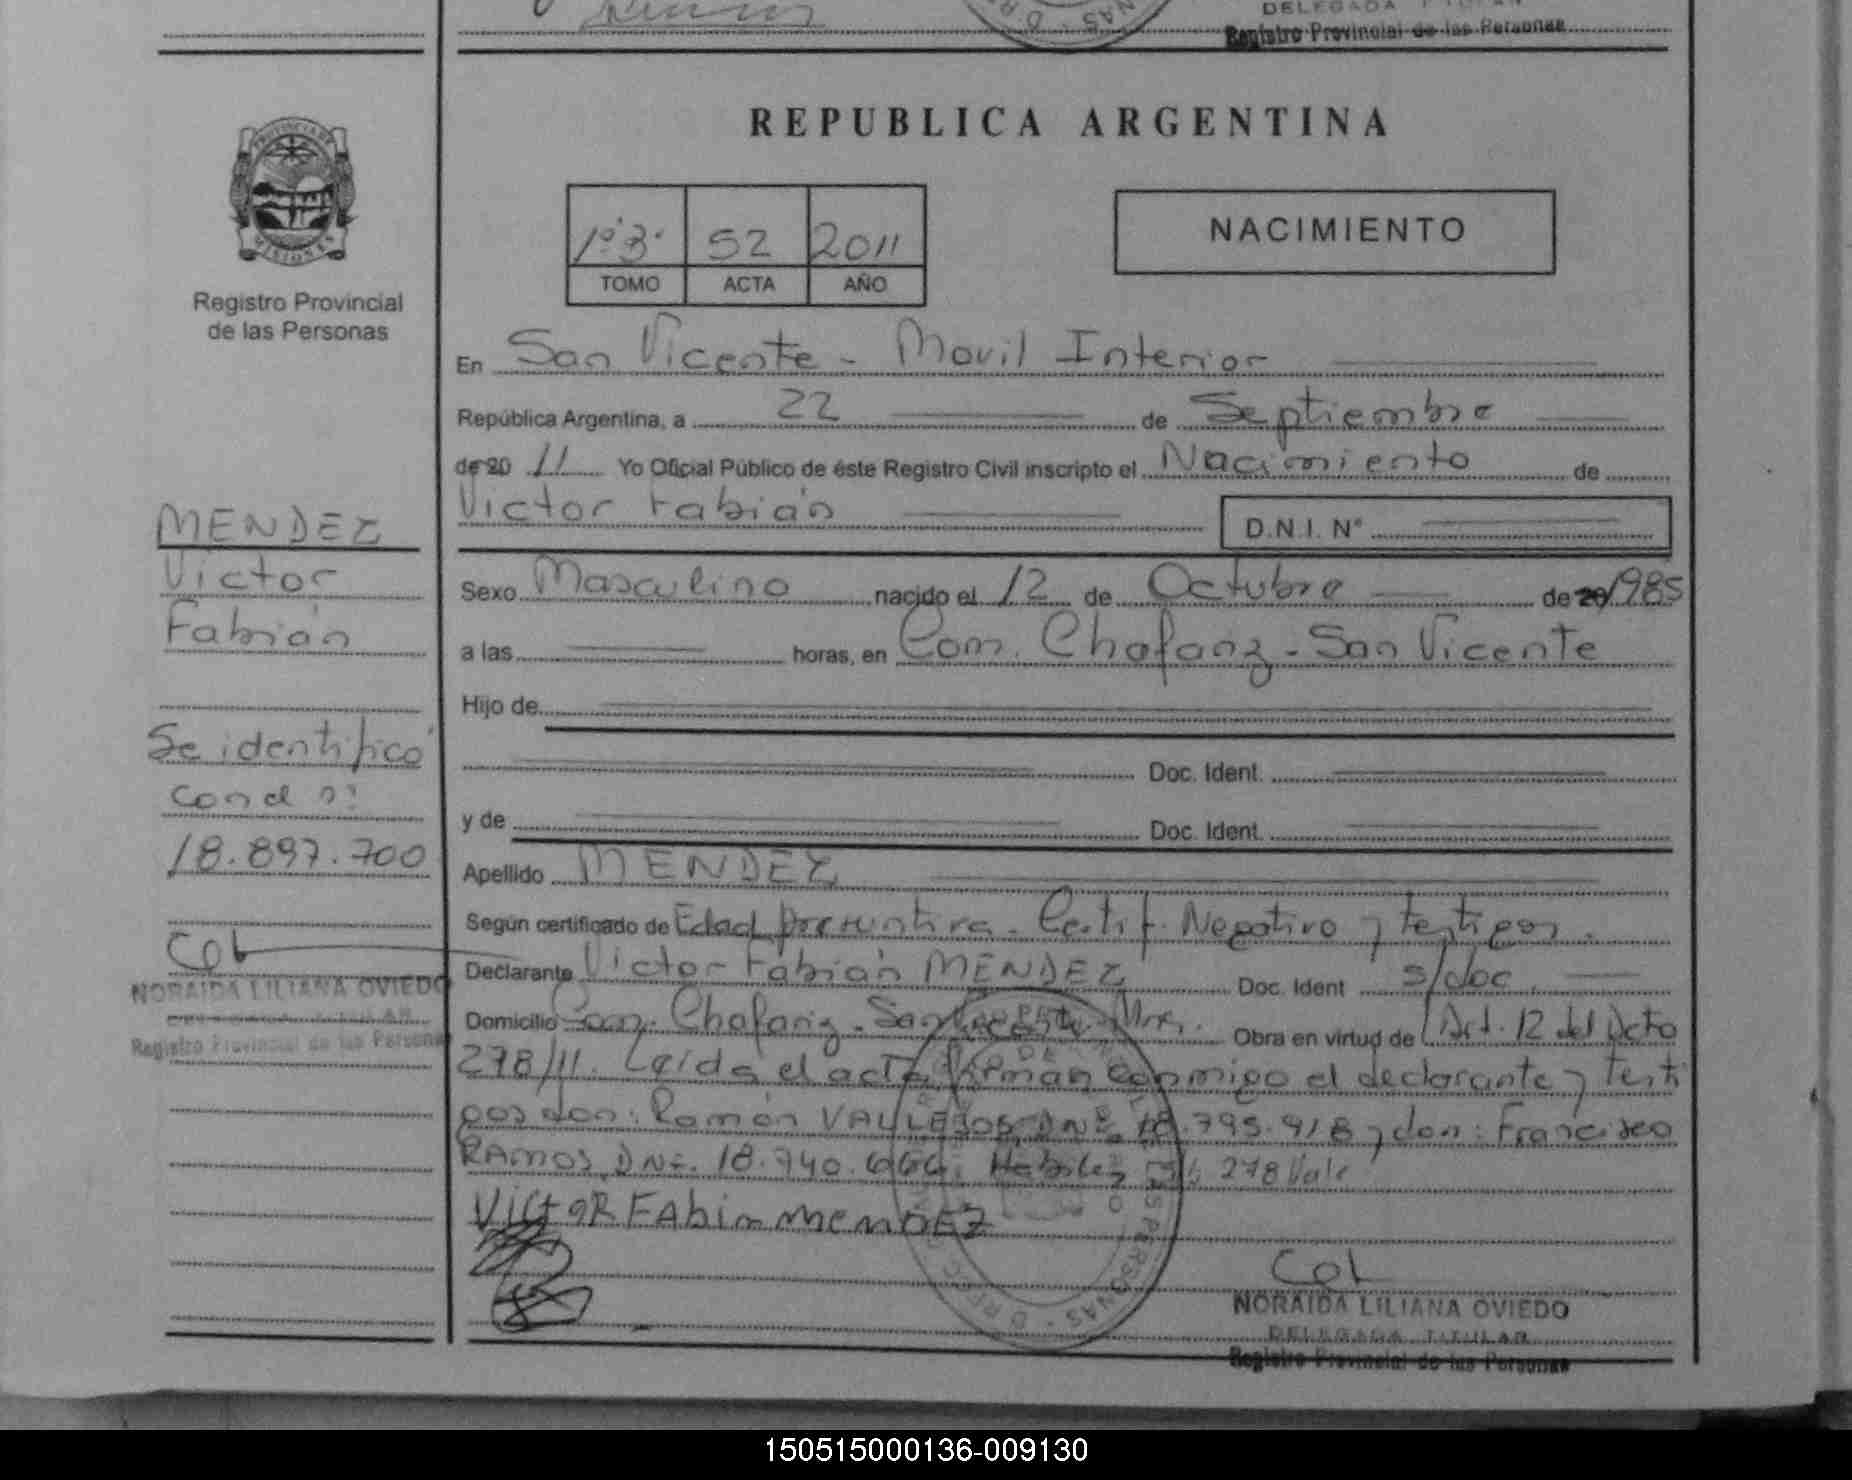 DELEGADA TITULAR
Registro Provincial de las Personas
REPUBLICA ARGENTINA
PROVINCIA DE
MISIONES
Registro Provincial
de las Personas
1º 3º 52 2011
TOMO ACTA AÑO
NACIMIENTO
En San Vicente - Movil Interior
República Argentina, a 22 de Septiembre
de 20 11 Yo Oficial Público de éste Registro Civil inscripto el Nacimiento de
Victor Fabián D.N.I. Nº
MENDEZ
Victor
Fabián
Sexo Masculino nacido el 12 de Octubre de 20 1985
a las horas, en Com. Chafariz - San Vicente
Hijo de
Doc. Ident.
y de Doc. Ident.
Se identificó
con d n:
18.897.700
Apellido MENDEZ
Según certificado de Edad presuntiva - Certif. Negativo y testigos.
Declarante Victor Fabián MENDEZ Doc. Ident s/doc
Domicilio Com. Chafariz - San Vicente - Mnes. Obra en virtud de Art. 12 del Dcto
278/11. Leida el acta firman conmigo el declarante y testi
gos don: Ramón VALLEJOS DNI. 18.795.918 y don: Francisco
RAMOS DNI. 18.740.666. Habiles 278 Vale
VictoR FAbian menDEZ
NORAIDA LILIANA OVIEDO
DELEGADA TITULAR
Registro Provincial de las Personas
NORAIDA LILIANA OVIEDO
DELEGADA TITULAR
Registro Provincial de las Personas
150515000136-009130